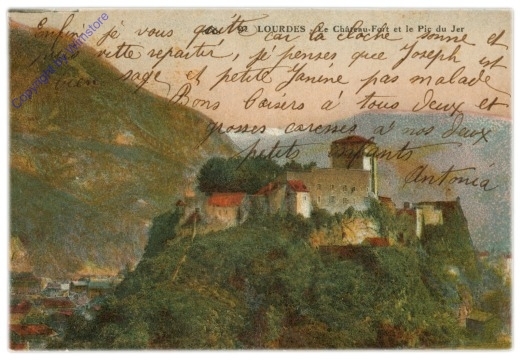 92 LOURDES - Le Château-Fort et le Pic du Jer
Enfin je vous quitte car la cloche sonne et
vite repartir, je penses que Joseph est
bien sage et petite Janine pas malade
Bons baisers à tous deux et
grosses caresses à nos deux
petits enfants
Antonia